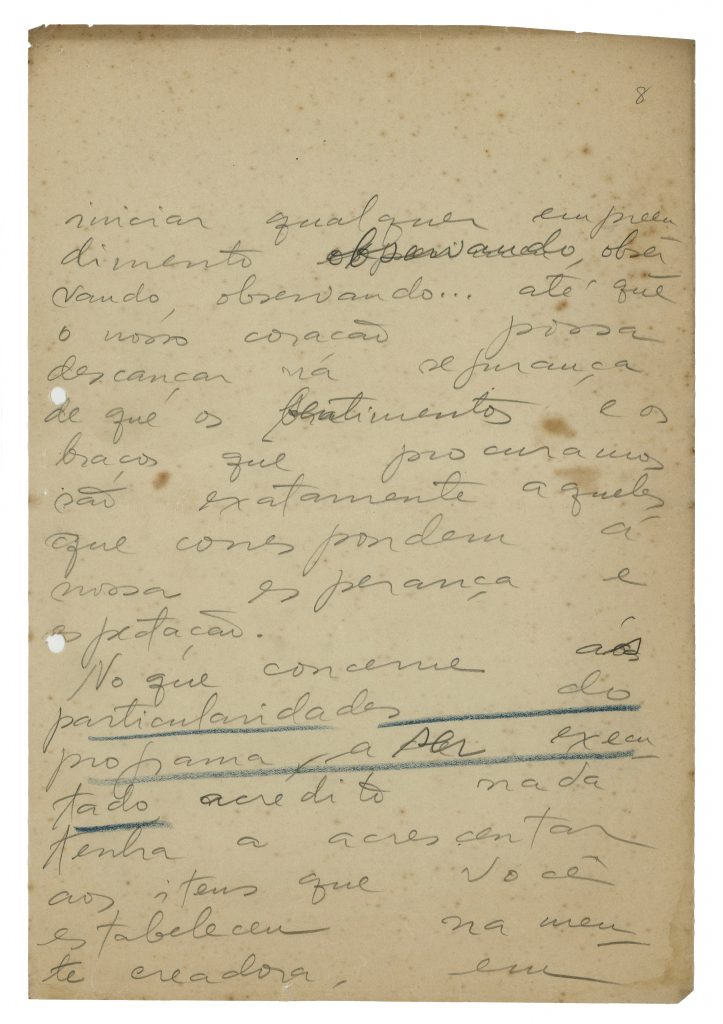 8
iniciar qualquer empreen
dimento observando, obser
vando, observando... até que
o nosso coração possa
descançar ná segurança
de que os sentimentos e os
braços que procuramos
são exatamente aqueles
que correspondem á
nossa esperança e
espetação.
No que concerne ás
particularidades do
programa a ser execu_
tado, acredito nada
tenha a acrescentar
aos itens que você
estabeleceu na men_
te creadora, em